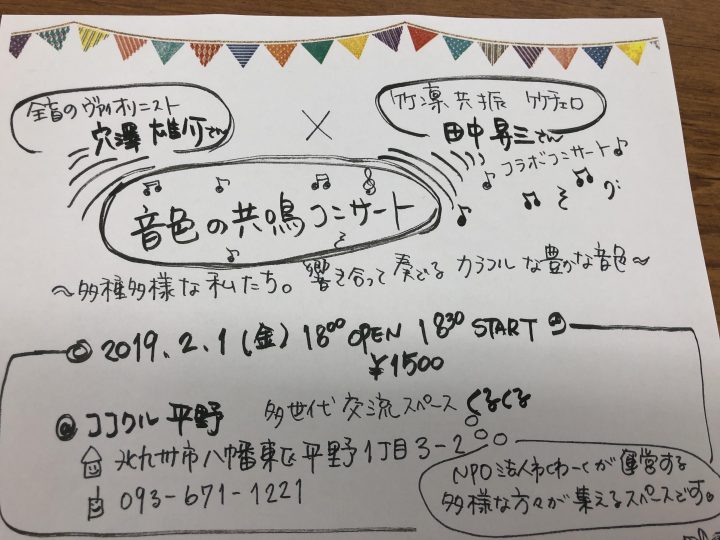 全盲のヴァイオリニスト
穴澤 雄介さん
×
竹凛共振 竹チェロ
田中 昇三さん
コラボコンサート
音色の共鳴コンサート
～多種多様な私たち。響き合って奏でる カラフルな豊かな音色～
2019.2.1(金) 18:00 OPEN 18:30 START
¥1500
ココクル平野 多世代交流スペース くるくる
北九州市八幡東区平野1丁目3-2
093-671-1221
NPO法人わくわーくが運営する
多様な方々が集えるスペースです。